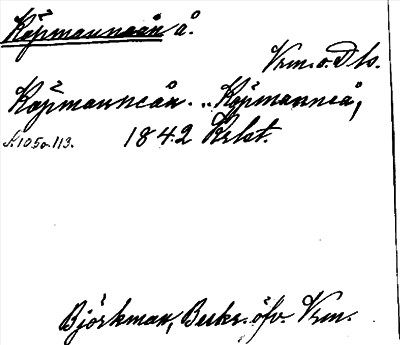 Köpmanneån å.
Vrm. o. Dls.
Köpmanneån. „Köpmanneå,
s. 105 o. 113. 1842 Krlst.
Björkman, Beskr. öfv. Vrm.